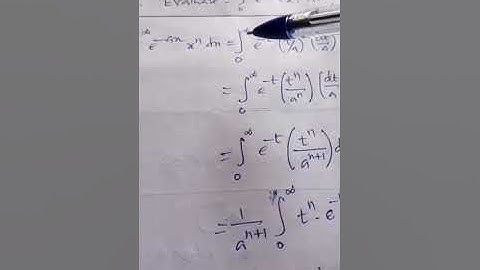 Evaluate
e^{-ax} x^n dx = ∫_0^∞ e^{-t} (t/a)^n (dt/a)
= ∫_0^∞ e^{-t} (t^n/a^n) (dt/a
= ∫_0^∞ e^{-t} (t^n/a^{n+1}) d
= 1/a^{n+1} ∫_0^∞ t^n · e^{-t